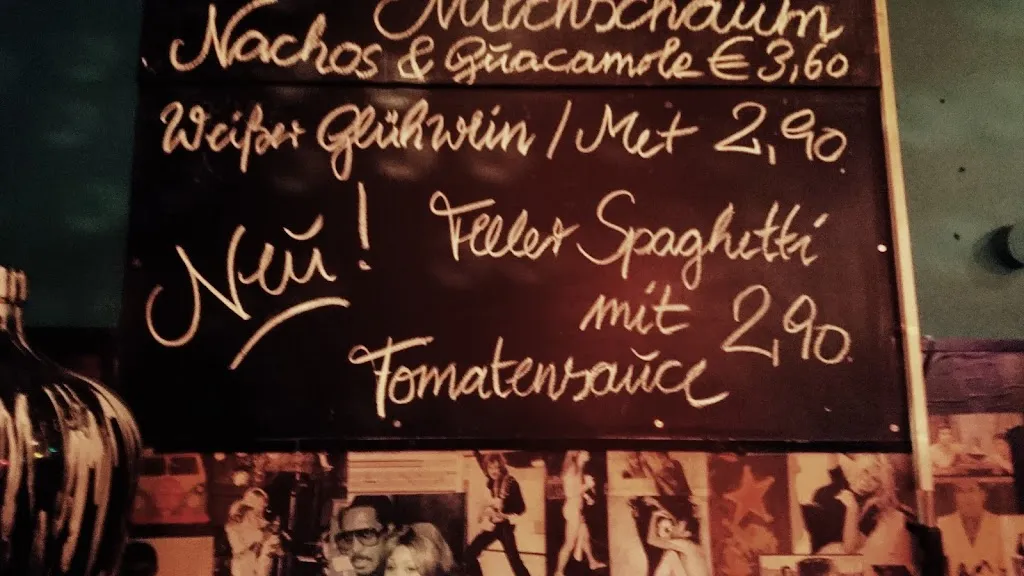 Milchschaum
Nachos & Guacamole € 3,60
Weißer Glühwein / Met 2,90
Neu! Teller Spaghetti
mit 2,90
Tomatensauce